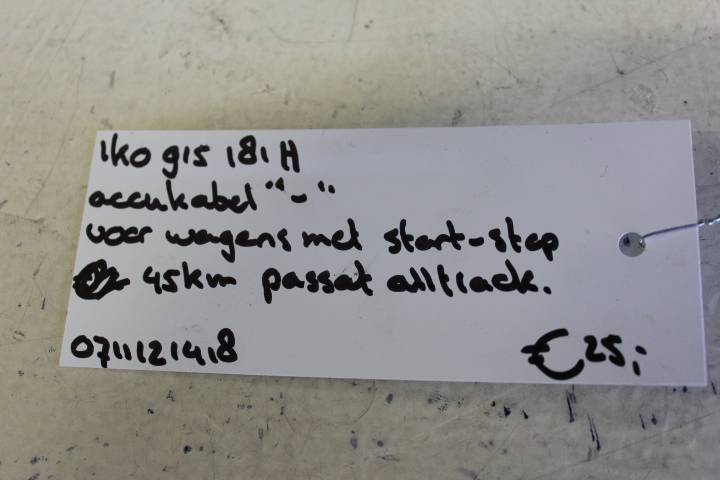 1K0 915 181 H
accukabel "-"
voor wagens met start-stop
45km passat alltrack.
0711121418
€ 25,-